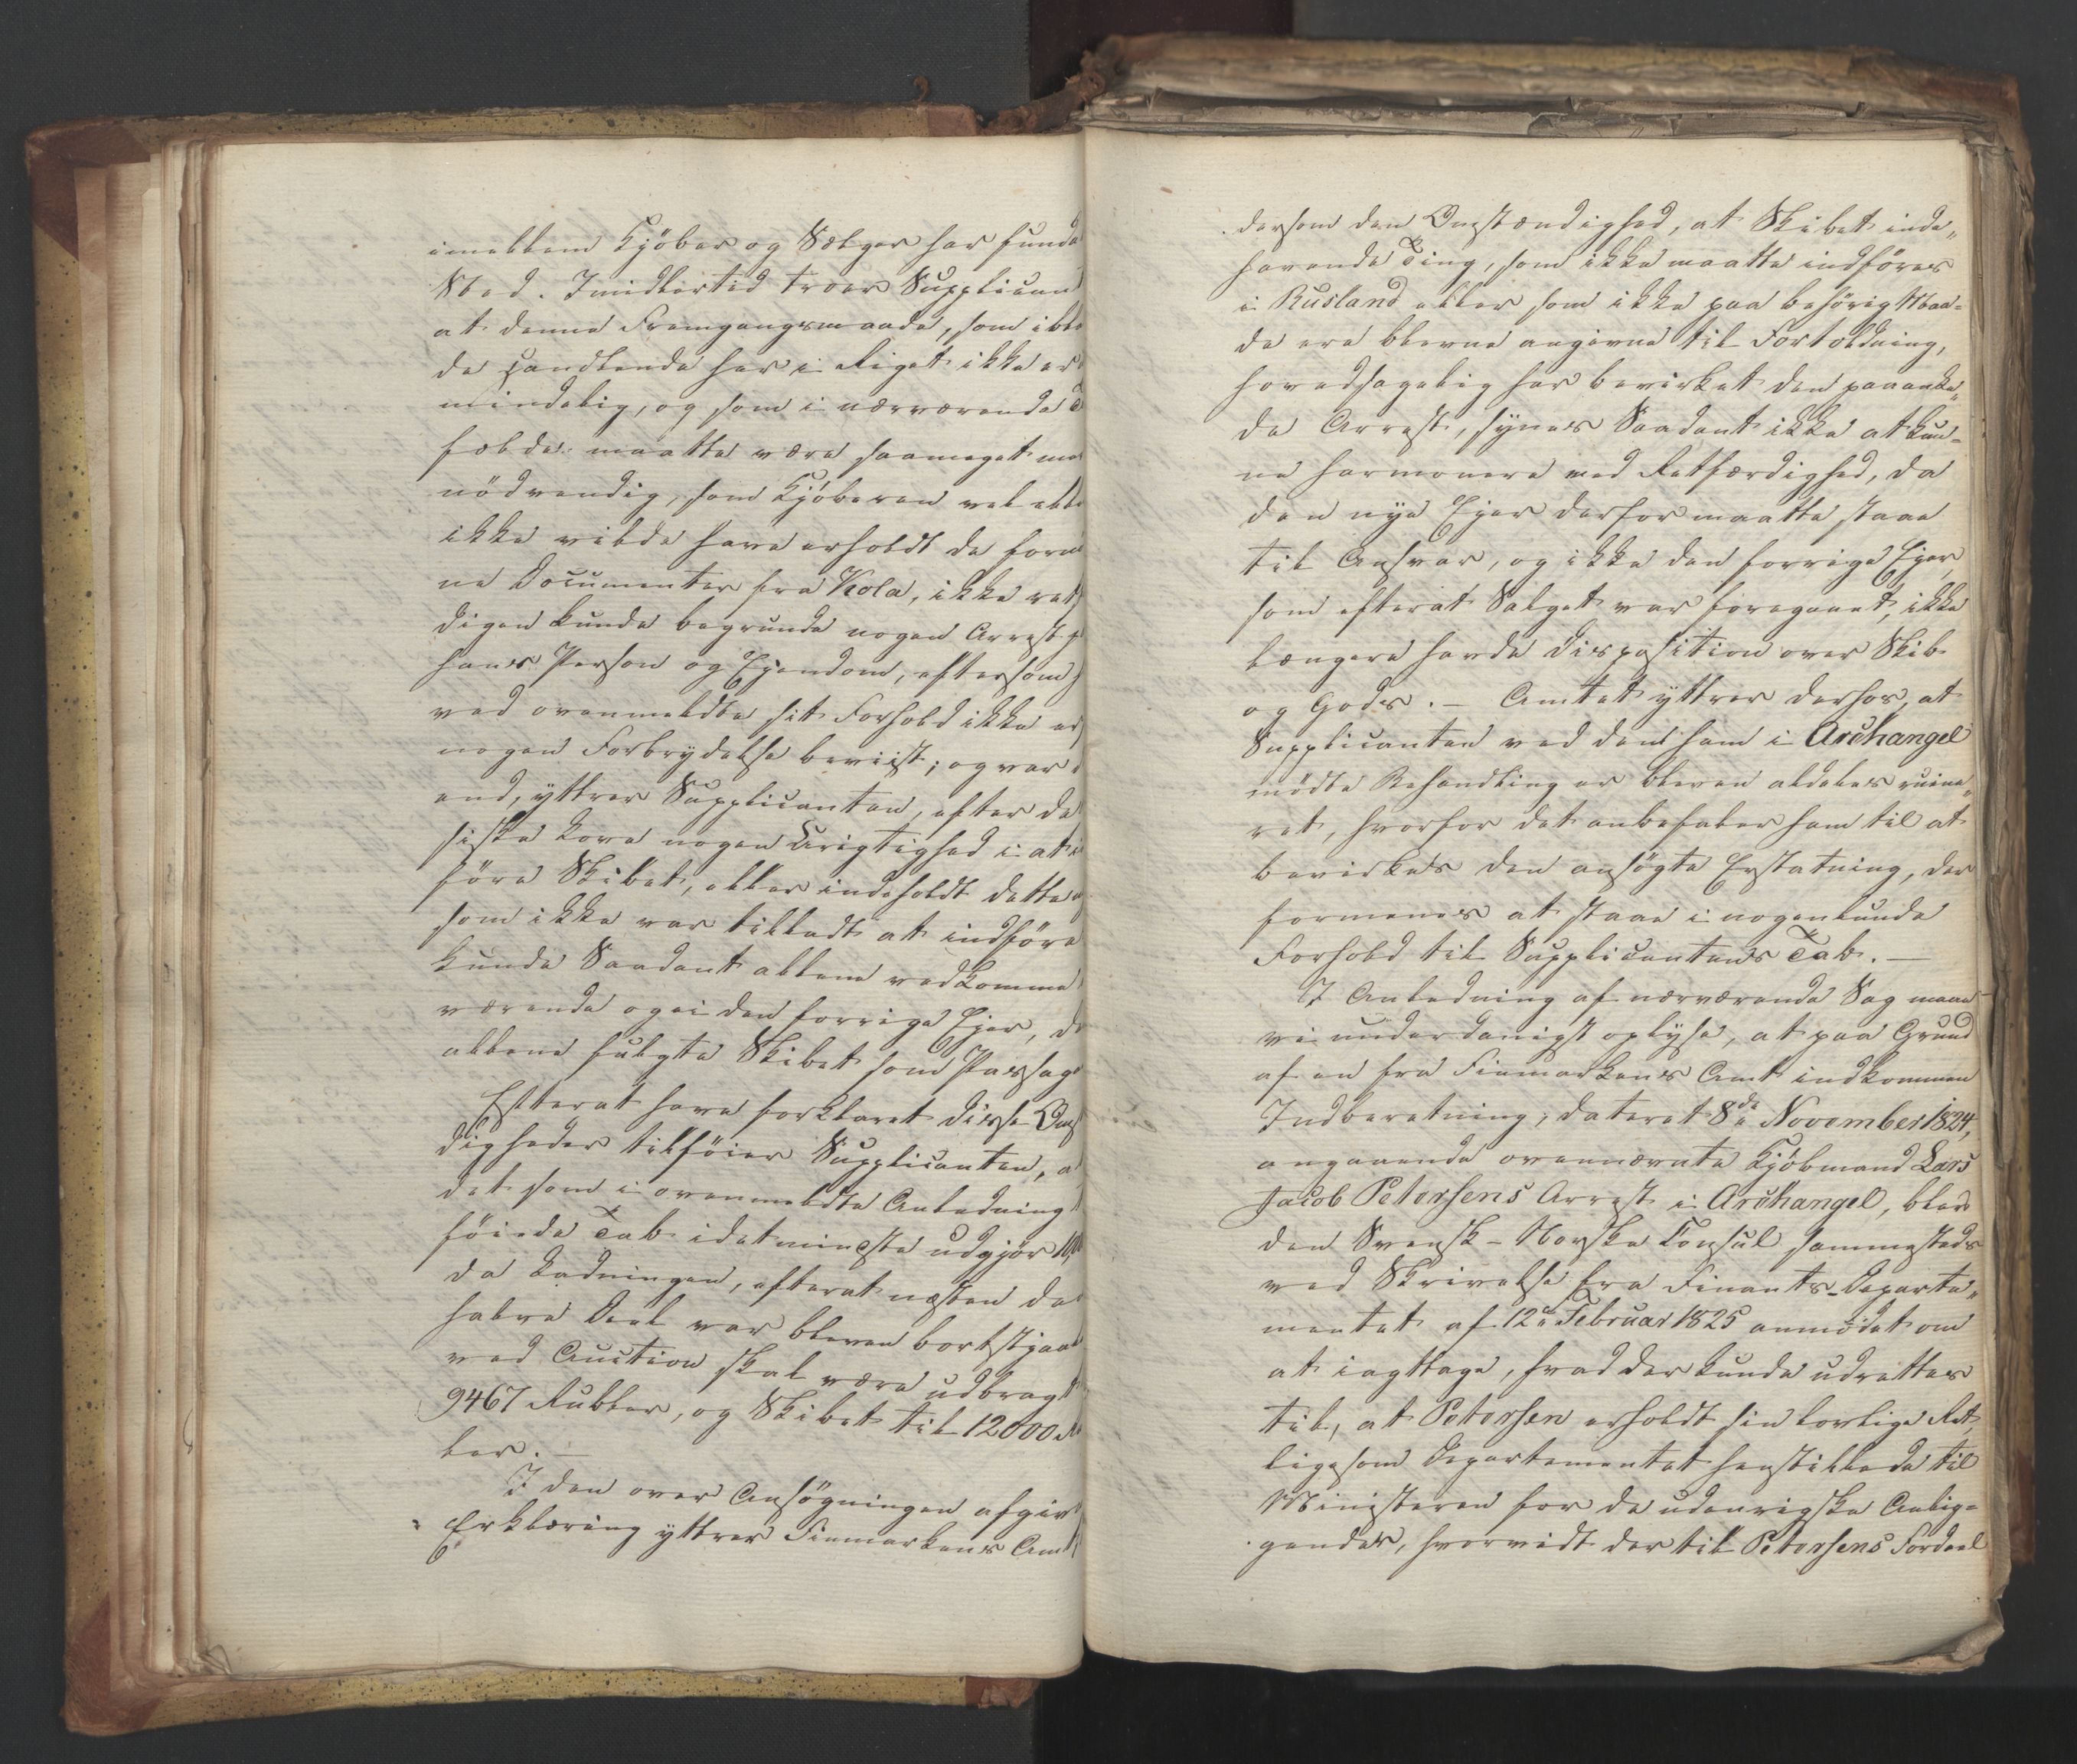 imellem Kjöber og Sælger har funde
Sted. Imidlertid troer Supplicant
at denne Fremgangsmaade, som ibl
de Handlende her i Riget ikke er
mindelig, og som i nærværende T
fælde maatte være saameget me
nödvendig, som Kjöberen vel ell
ikke vilde have erholdt de forn
ne Documenter fra Kola, ikke ret
digen kunde begrunde nogen Arrest p
hans Person og Ejendom, eftersom
ved ovenmeldte sit Forhold ikke er
nogen Forbrydelse beviist; og var
end, yttrer Supplicanten, efter de
siske Love nogen Urigtighed i at i
före Skibet, eller indeholdt dette
som ikke var tilladt at indföre
kunde Saadant allene vedkomme
værende og ei den forrige Ejer, de
allene fulgte Skibet som Passag
Efterat have forklaret disse Omst
digheder tilföier Supplicanten, a
det som i ovenmeldte Anledning
föiede Tab idetmindste udgjör
da Ladningen, efterat næsten de
halve Deel var bleven bortstjaal
ved Auction skal være udbragt
9467 Rubler, og Skibet til 12000 Ru
ler. —
I den over Ansögningen afgiv
Erklæring yttrer Finmarkens Amt
dersom den Omstændighed, at Skibet inde„
havende Ting, som ikke maatte indföres
i Rusland eller som ikke paa behörig Maa=
de ere blevne angivne til Fortoldning,
hovedsagelig har bevirket den paaanke„
de Arrest, synes Saadant ikke at kun=
ne harmonere med Retfærdighed, da
den nye Ejer derfor maatte staae
til Ansvar, og ikke den forrige Ejer,
som efterat Salget var foregaaet, ikke
længere havde Disposition over Skib
og Gods. — Amtet yttrer derhos, at
Supplicanten ved den ham i Archangel
mödte Behandling er bleven aldeles ruine„
ret, hvorfor det anbefaler ham til at
bevirkes den ansögte Erstatning, der
formenes at staae i nogenlunde
Forhold til Supplicantens Tab. —
I Anledning af nærværende Sag maae
vi underdanigst oplyse, at paa Grund
af en fra Finmarkens Amt indkommen
Indberetning, dateret 8de November 1824,
angaaende ovennævnte Kjöbmand Lars
Jacob Petersens Arrest i Archangel, blev
den Svensk-Norske Consul sammesteds
ved Skrivelse fra Finants-Departe„
mentet af 12te Februar 1825 anmodet om
at iagttage, hvad der kunde udrettes
til, at Petersen erholdt sin lovlige Ret,
ligesom Departementet henstillede til
Ministeren for de udenrigske Anlig=
gender, hvorvidt der til Petersens Fordeel